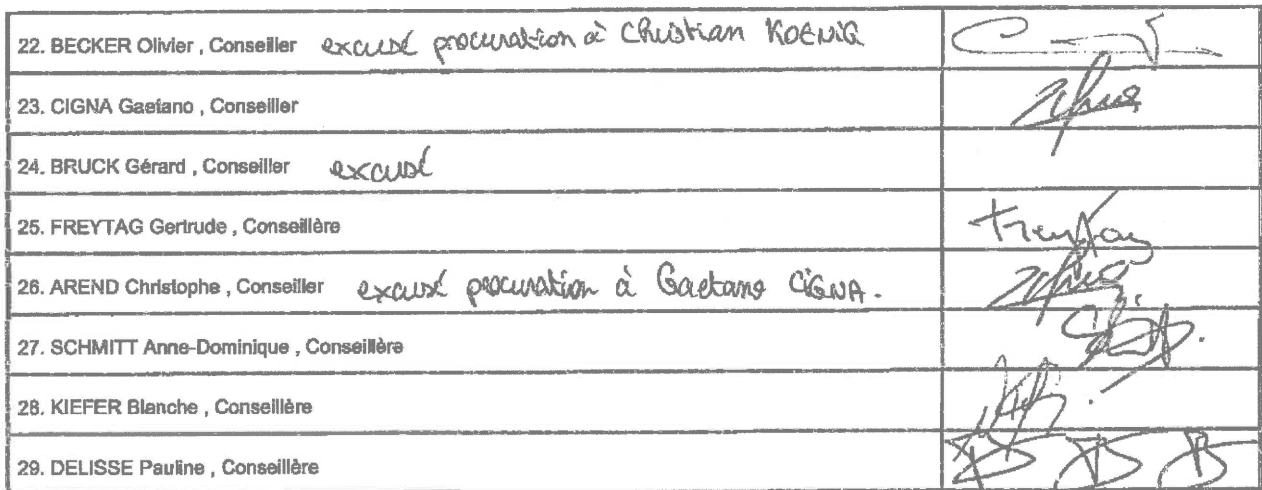 22. BECKER Olivier , Conseiller excusé procuration à Christian KOENIG
23. CIGNA Gaetano , Conseiller
24. BRUCK Gérard , Conseiller excusé
25. FREYTAG Gertrude , Conseillère
Freytag
26. AREND Christophe , Conseiller excusé procuration à Gaetano CIGNA.
27. SCHMITT Anne-Dominique , Conseillère
28. KIEFER Blanche , Conseillère
29. DELISSE Pauline , Conseillère